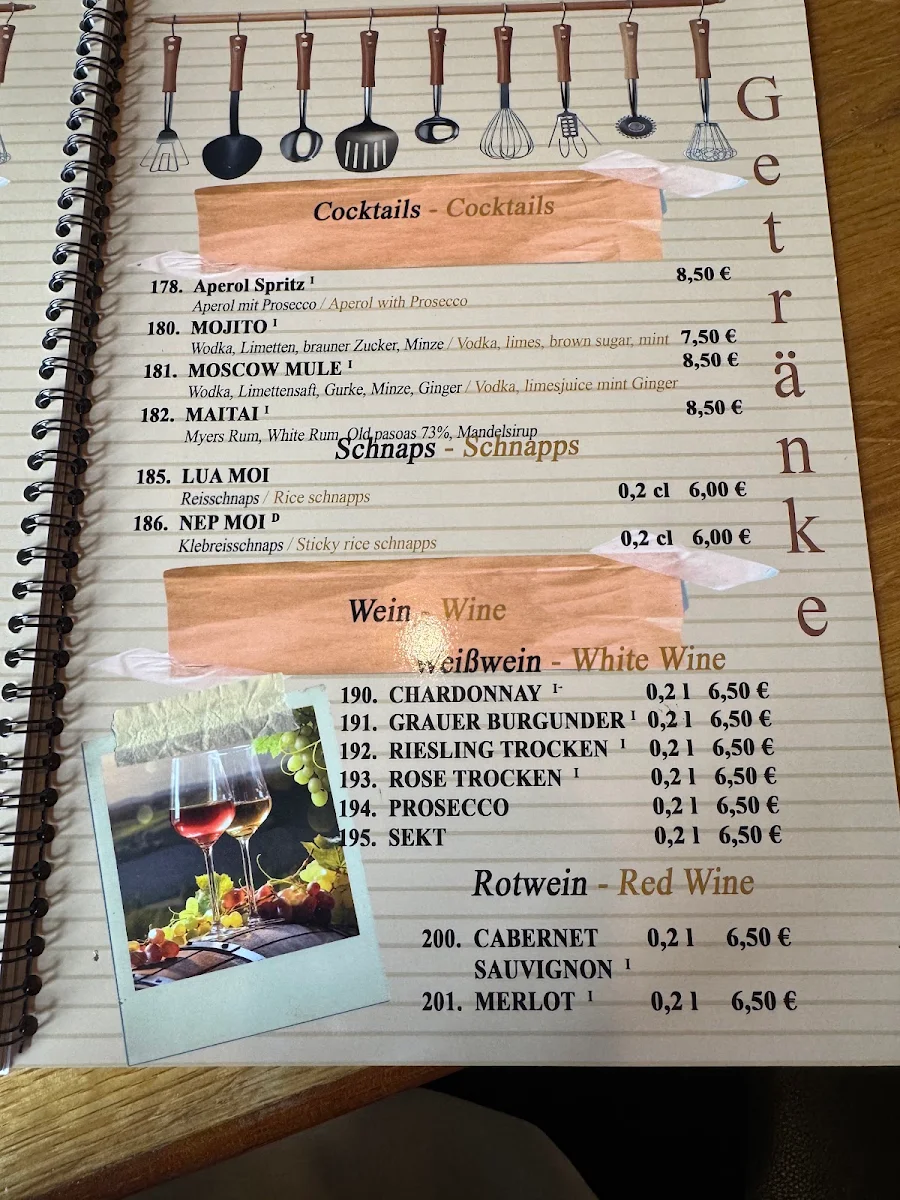 Getränke
Cocktails - Cocktails
178. Aperol Spritz I 8,50 €
Aperol mit Prosecco / Aperol with Prosecco
180. MOJITO I
Wodka, Limetten, brauner Zucker, Minze / Vodka, limes, brown sugar, mint 7,50 €
181. MOSCOW MULE I 8,50 €
Wodka, Limettensaft, Gurke, Minze, Ginger / Vodka, limesjuice mint Ginger
182. MAITAI I 8,50 €
Myers Rum, White Rum, Old pasoas 73%, Mandelsirup
Schnaps - Schnapps
185. LUA MOI
Reisschnaps / Rice schnapps 0,2 cl 6,00 €
186. NEP MOI D
Klebreisschnaps / Sticky rice schnapps 0,2 cl 6,00 €
Wein - Wine
Weißwein - White Wine
190. CHARDONNAY I- 0,2 l 6,50 €
191. GRAUER BURGUNDER I 0,2 l 6,50 €
192. RIESLING TROCKEN I 0,2 l 6,50 €
193. ROSE TROCKEN I 0,2 l 6,50 €
194. PROSECCO 0,2 l 6,50 €
195. SEKT 0,2 l 6,50 €
Rotwein - Red Wine
200. CABERNET 0,2 l 6,50 €
SAUVIGNON I
201. MERLOT I 0,2 l 6,50 €